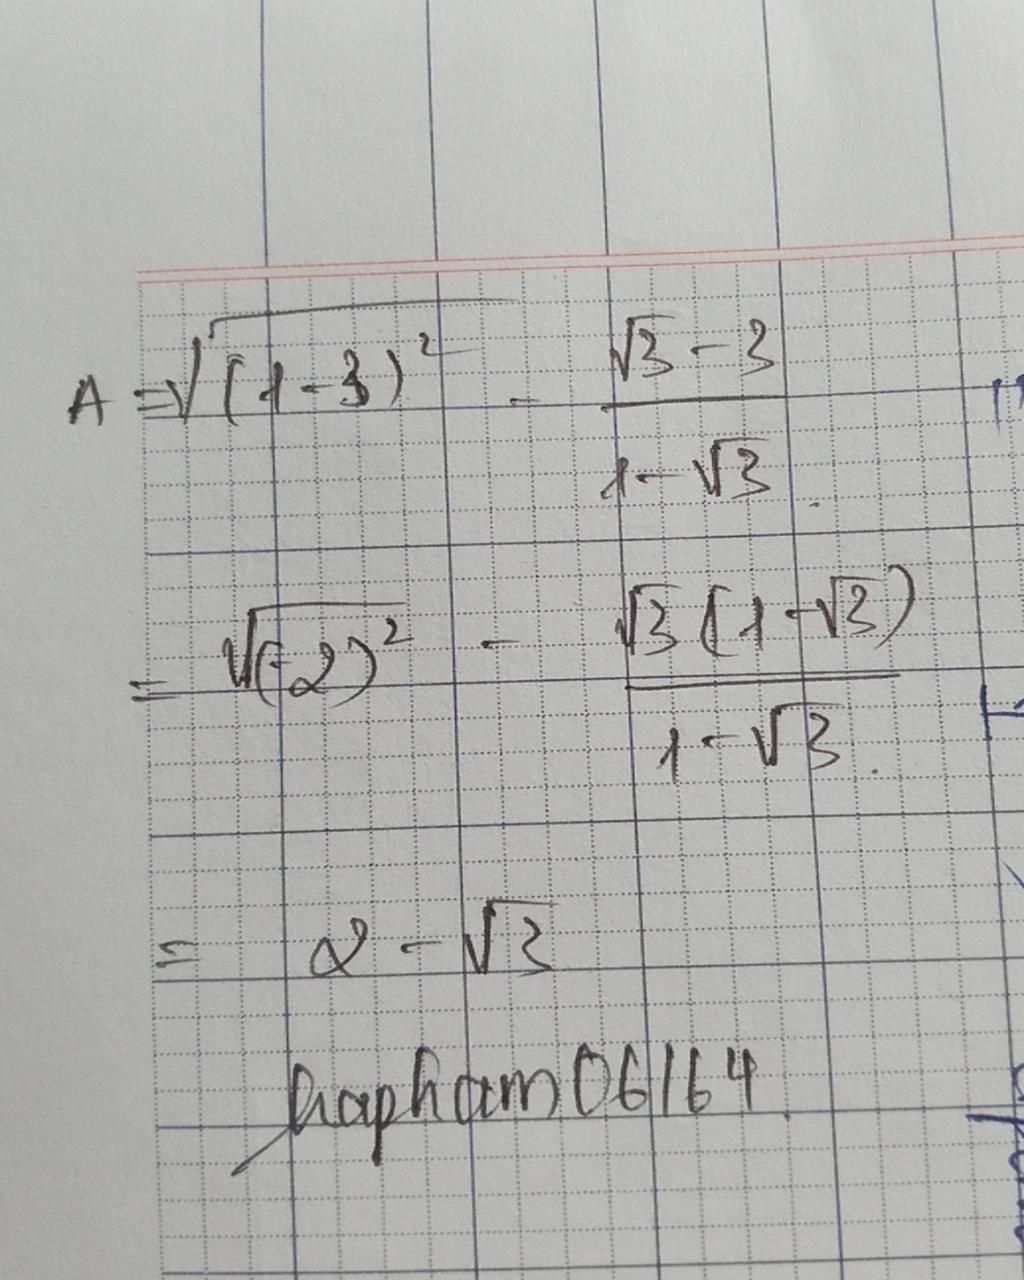 A = √(1-3)² - (√3 - 3)/(1 - √3)
= √(-2)² - √3(1-√3)/(1-√3).
= 2 - √3
hapham06164